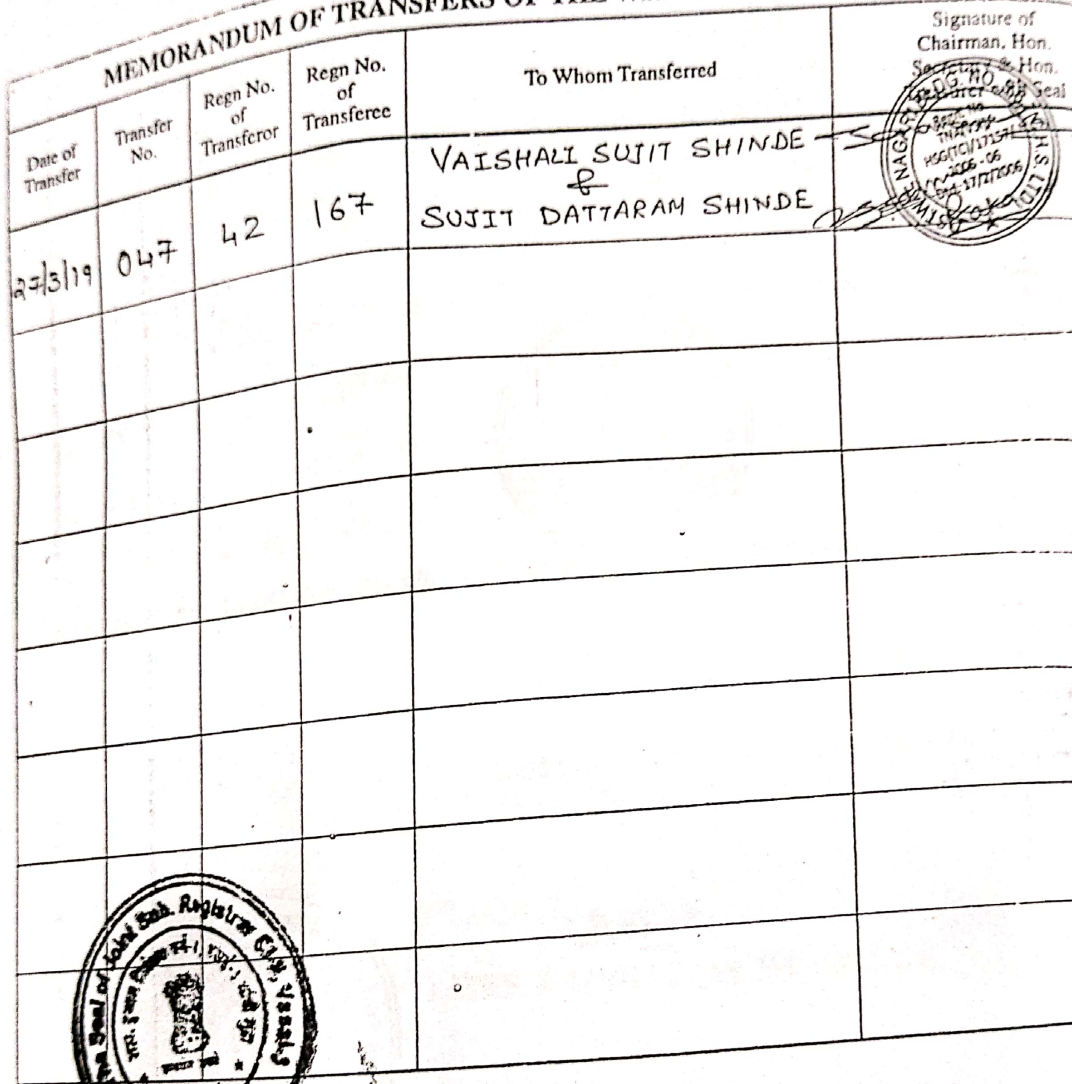 MEMORANDUM OF TRANSFERS OF THE
Date of Transfer
Transfer No.
Regn No. of Transferor
Regn No. of Transferee
To Whom Transferred
Signature of
Chairman, Hon.
Secretary & Hon.
Treasurer with Seal
27/3/19 047 42 167 VAISHALI SUJIT SHINDE
&
SUJIT DATTARAM SHINDE
NAGAR BLDG. NO. C.H.S. LTD.
17/2/2006
Seal of Joint Sub. Registrar Vasai